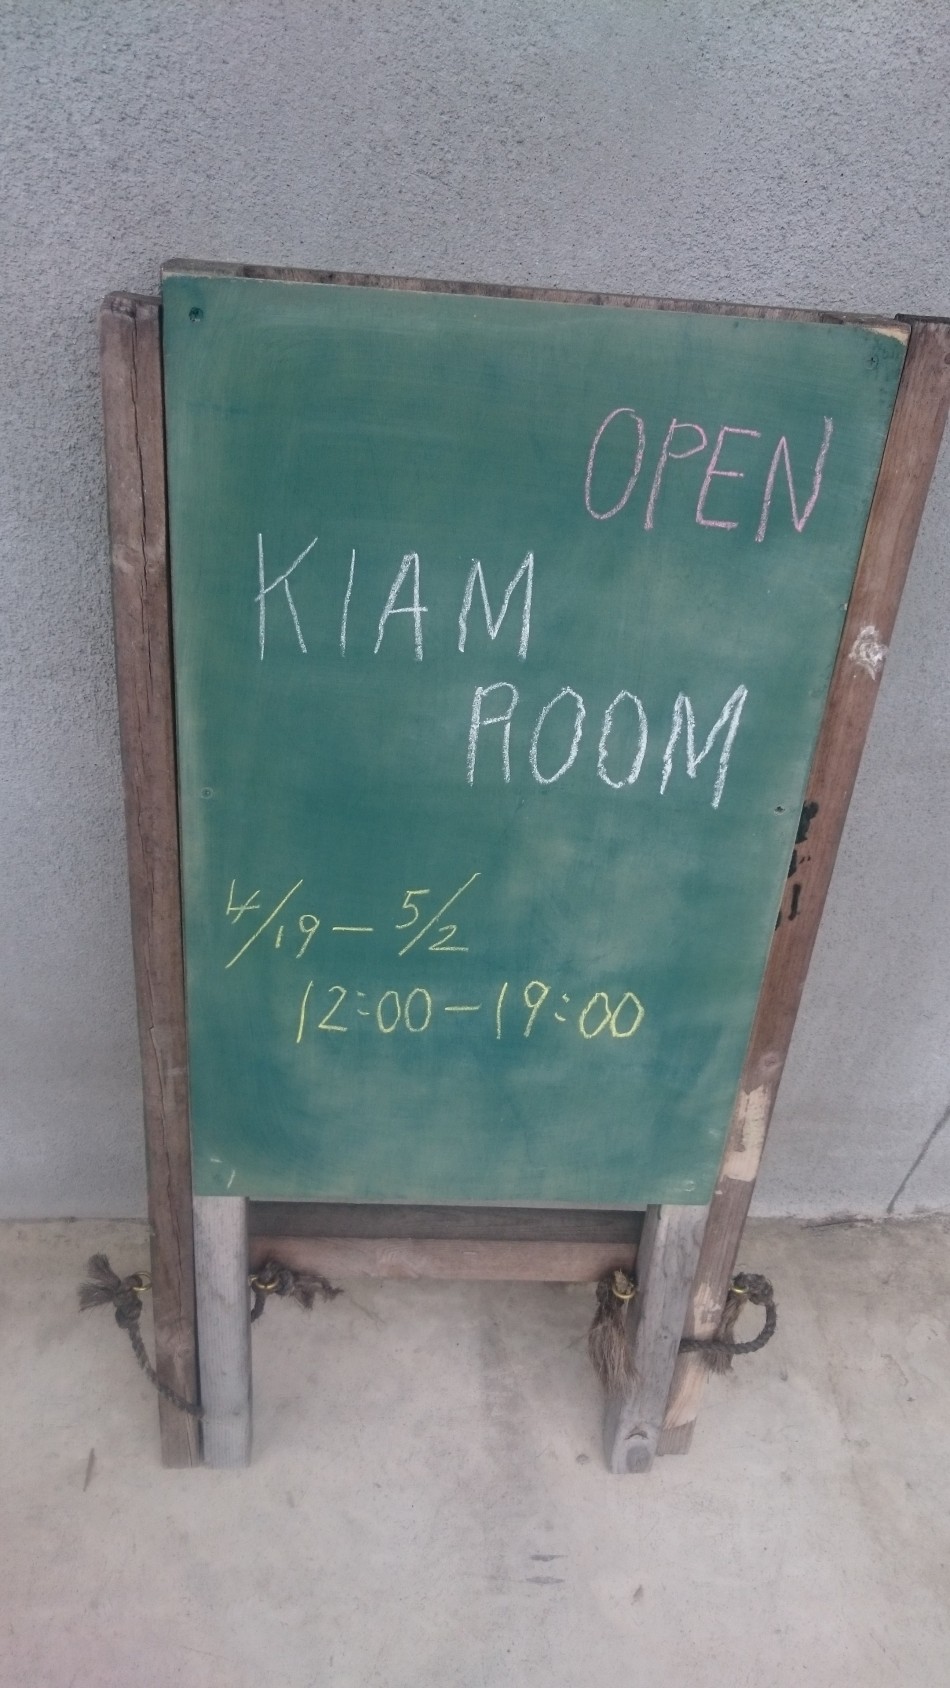 OPEN
KIAM
ROOM
4/19-5/2
12:00-19:00